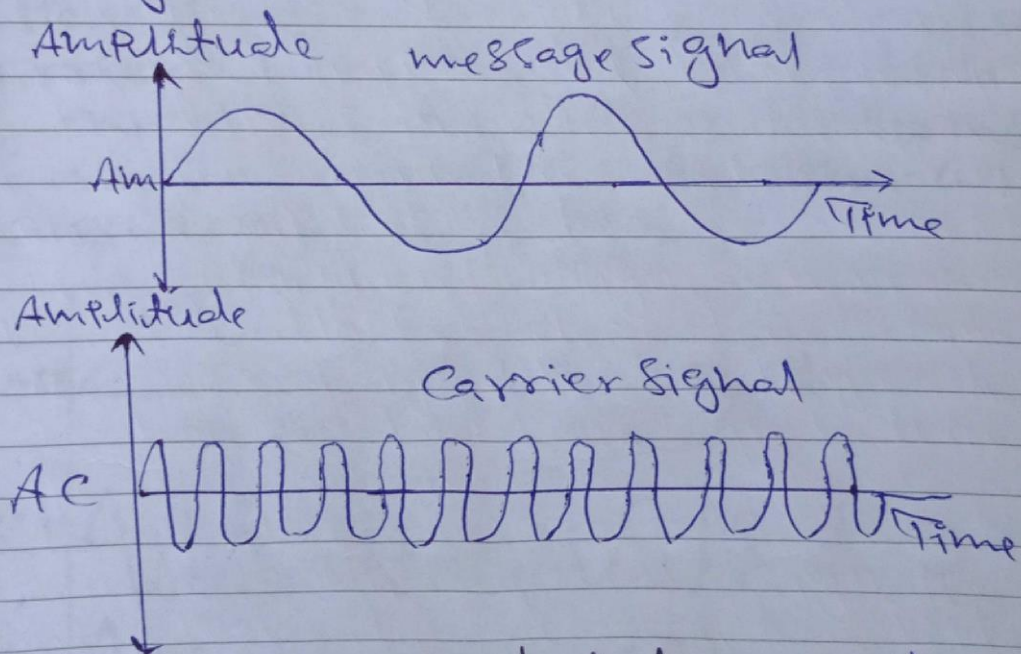 Amplitude message signal
Am
Time
Amplitude
Carrier signal
AC
Time